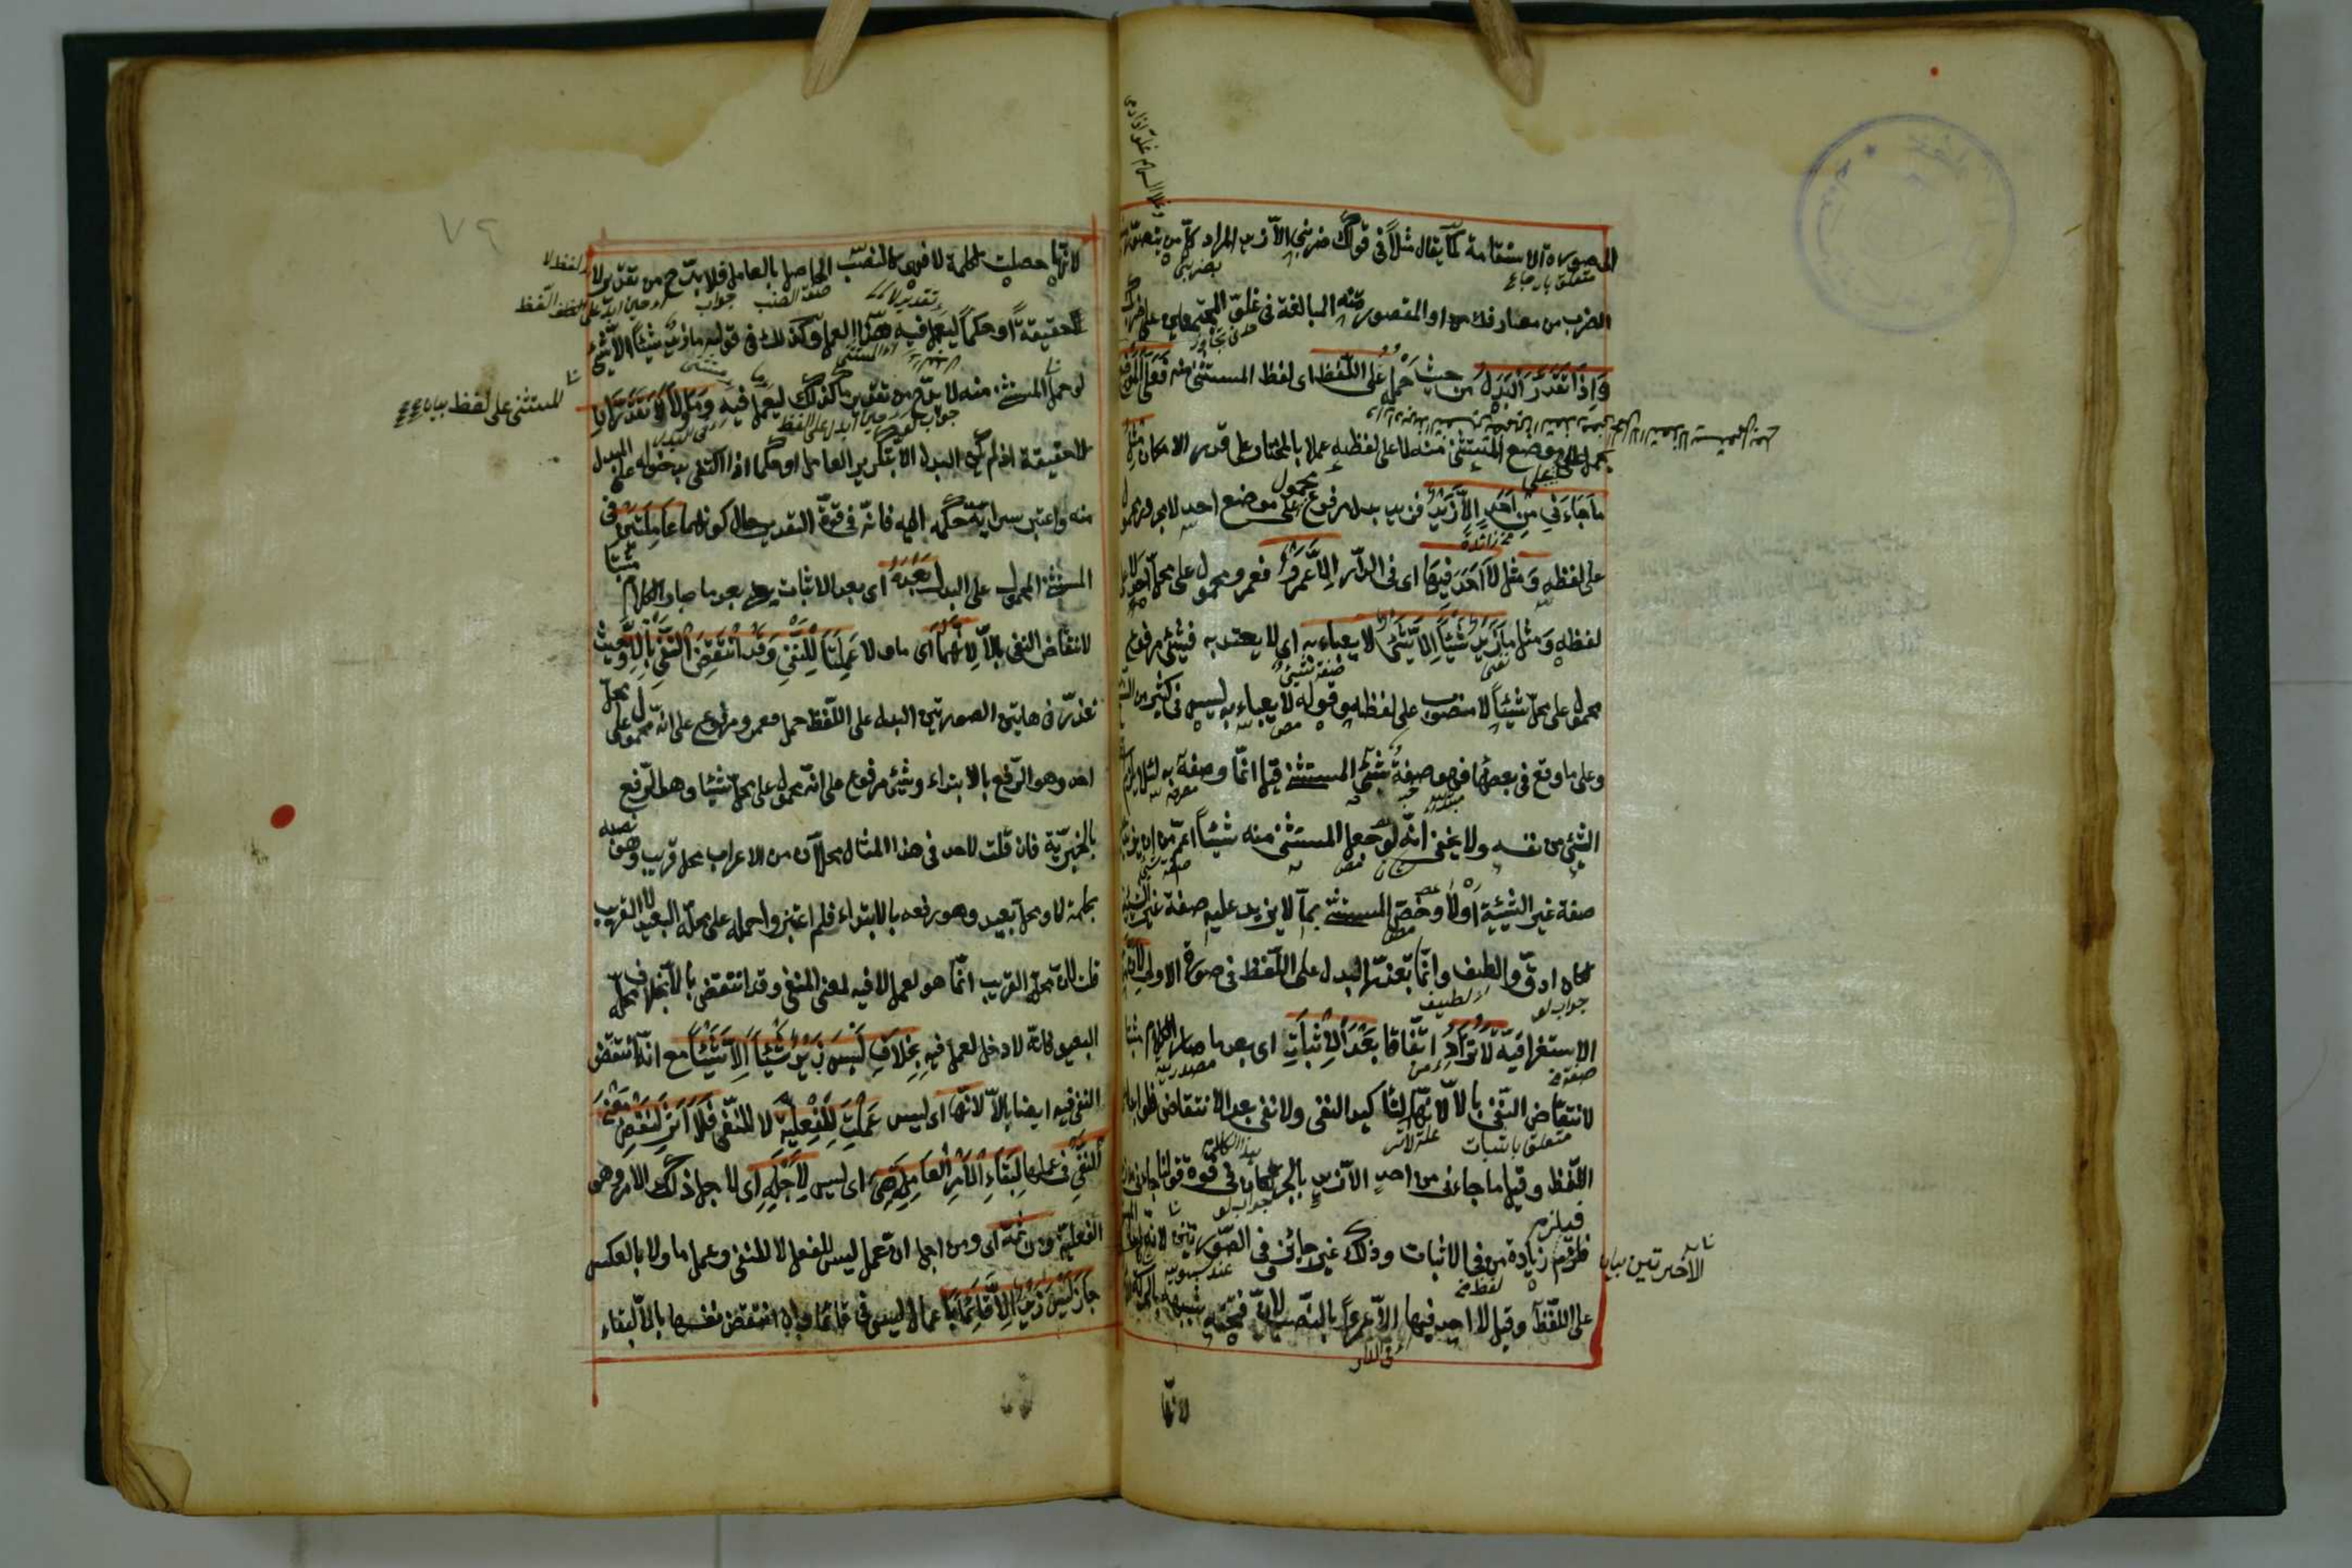 الصورة الاستقامة كما يقال مثلا في قولك ضربني الا زيد المراد كل من يتصور
الضرب من معارفك او المقصود منه المبالغة في غلو المجتمعين على ضربك
وَاِذَا تَعَذَّرَ الْبَدَلُ من حيث حمله عَلَى اللَّفْظِ اى لفظ المستثنى منه فَعَلَى الْمَوْضِعِ
يحمل على موضع المستثنى منه لا على لفظه عملا بالمختار على قدر الامكان مِثْلُ
مَا جَاءَنِي مِنْ اَحَدٍ اِلَّا زَيْدٌ فزيد بدل مرفوع محمول على موضع احد لا مجرور محمول
على لفظه وَمثل لَا اَحَدَ فِيهَا اى فى الدار اِلَّا عَمْرٌو فعمرو محمول على محل احد لا على
لفظه وَ مثل مَا زَيْدٌ شَيْئًا اِلَّا شَيْءٌ لا يعباء به اى لا يعتد به فشئ مرفوع
محمول على محل شيئا لا منصوب على لفظه وقوله لا يعباء به ليس فى كثير من النسخ
وعلى ما وقع فى بعضها فهو صفة شئ المستثنى قيل انما وصفه به لئلا يلزم
الشئ من نفسه ولا يخفى انه لو جعل المستثنى منه شيئا اعم من ان يزيد
صفة غير الشيئية اولا وخص المستثنى بما لا يزيد عليه صفة غير الشيئية
لكان ادق والطف وانما تعذر البدل على اللفظ فى صورة الاولى لِاَنَّ مِنْ
الاستغراقية لَا تُزَادُ اتفاقا بَعْدَ الْاِثْبَاتِ اى بعد ما صار الكلام مثبتا
لانتقاض النفى بالا لانها لتأكيد النفى ولا نفى بعد الانتقاض فلو ابدل
اللفظ وقيل ما جاءنى من احد الا زيد بالجر لكان فى قوة قولنا جاءنى من زيد
فيلزم زيادة من فى الاثبات وذلك غير جائز
على اللفظ وقيل لا احد فيها الا عمروا بالنصب لان فتحته شبيهة بالحركة
فى الدار
الاخيرتين بيان
لانها
٧٩
لانها حصلت بكلمة لا فهى كالنصب الحاصل بالعامل فلا بد ح من تقدير لا
حقيقة او حكما ليعمل فيه هذا العمل وكذلك فى قوله ما زيد شيئا الا شئ
لو حمل المستثنى منه لا بد من تقدير ما كذلك ليعمل فيه وَمَا وَلَا لَا تُقَدَّرَانِ
للمستثنى على لفظ بيان
لا حقيقة اذا لم يكن البدل الا بتكرير العامل او حكما اذا اكتفى بدخوله على المبدل
منه واعتبر سراية حكمه اليه فانه فى قوة التقدير حال كونهما عَامِلَتَيْنِ فى
المستثنى المحمول على البدل بَعْدَهُ اى بعد الاثبات يعنى بعد ما صار الكلام مثبتا
لانتقاض النفى بالا لِاَنَّهُمَا اى ما و لا عَمِلَتَا لِلنَّفْيِ وَقَدِ انْتَقَضَ النَّفْيُ بِاِلَّا وحيث
تعذر فى هاتين الصورتين البدل على اللفظ حمل فعمرو مرفوع على انه محمول على محل
احد وهو الرفع بالابتداء وشئ مرفوع على انه محمول على محل شيئا وهو الرفع
بالخبرية فان قلت لاحد فى هذا المثال محلان من الاعراب محل قريب وهو نصبه
بكلمة لا ومحل بعيد وهو رفعه بالابتداء فلم اعتبروا حمله على محله البعيد لا القريب
قلت لان محله القريب انما هو لعمل لا فيه لمعنى النفى وقد انتقض بالا بخلاف محله
البعيد فانه لا دخل لعمل فيه بِخِلَافِ لَيْسَ زَيْدٌ شَيْئًا اِلَّا شَيْئًا مع انه انتقض
النفى فيه ايضا بالا لانها اى ليس عَمِلَتْ لِلْفِعْلِيَّةِ لا للنفى فَلَا اَثَرَ لِنَقْضِ مَعْنَى
النَّفْيِ فى عملها لِبَقَاءِ الْاَمْرِ الْعَامِلَةِ هِىَ اى ليس لِاَجْلِهِ اى لاجل ذلك الامر وهو
الفعلية وَمِنْ ثَمَّةَ اى ومن اجل ان عمل ليس للفعل لا للنفى وعمل ما ولا بالعكس
جَازَ لَيْسَ زَيْدٌ اِلَّا قَائِمًا باعمال ليس فى قائما وان انتقض نفيها بالا لبقاء